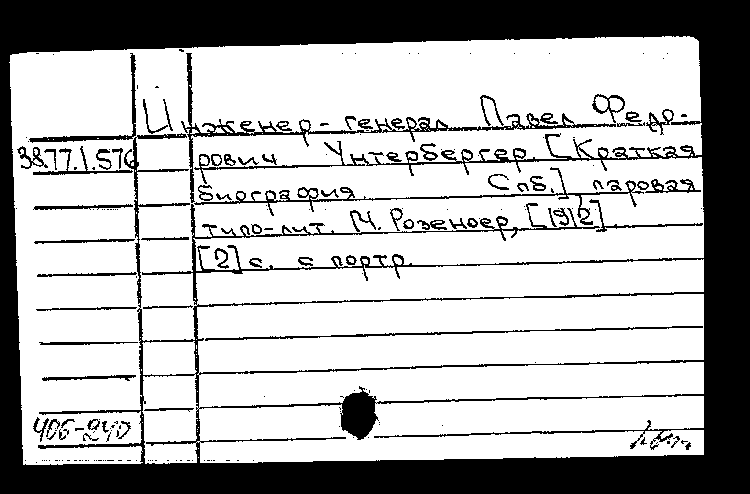 Инженер-генерал Павел Федо-
3877.1.576 рович Унтербергер. [Краткая
биография Спб.], паровая
типо-лит. М. Розеноер, [1912].
[2] с. с портр.
406-240